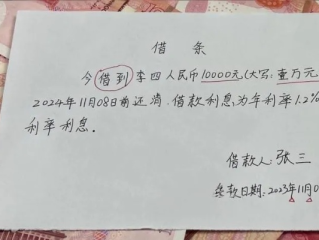 借 条
今借到李四人民币10000元(大写:壹万元
2024年11月08日前还清.借款利息为年利率1.2%
利率利息。
借款人:张三
借款日期:2023年11月0